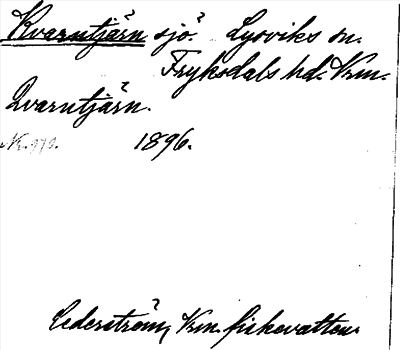 Kvarntjärn sjö. Lysviks sn.
Fryksdals hd. Vrm.
Qvarntjärn.
1896.
Cederström, Vrm. fiskevatten